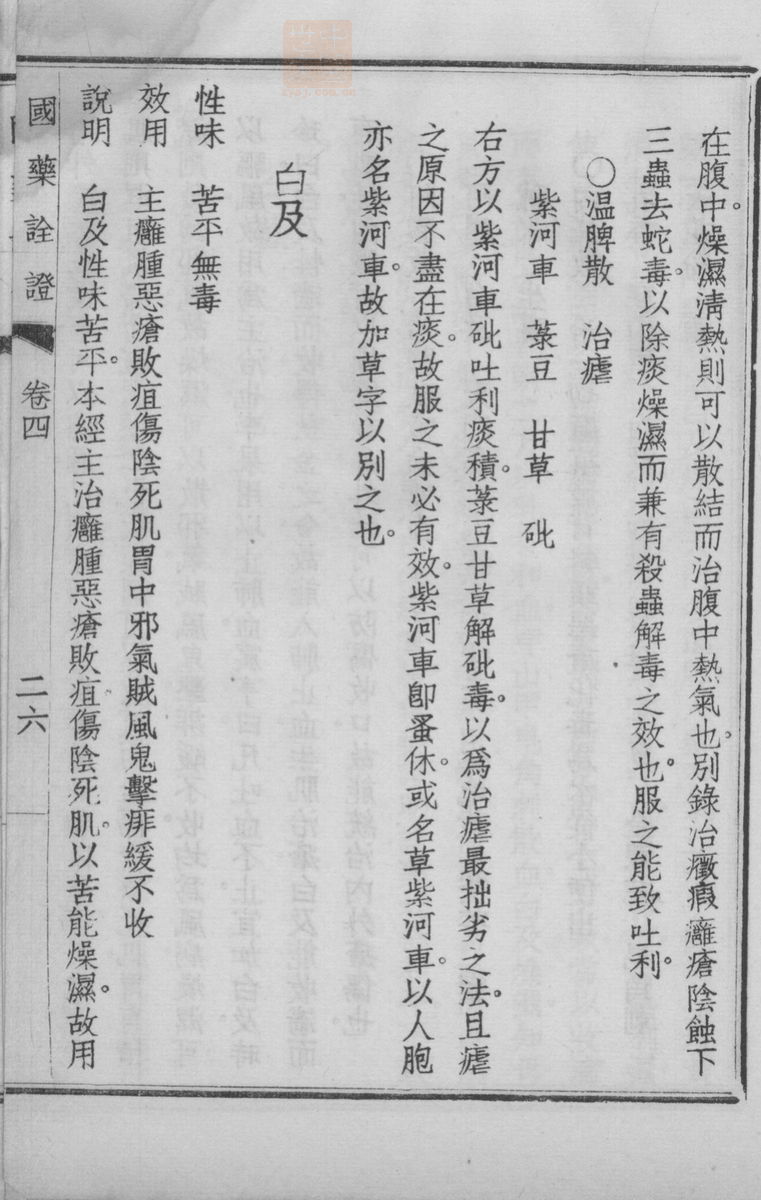 在腹中。燥濕淸熱則可以散結而治腹中熱氣也。別錄治癥瘕癰瘡陰蝕下
三蟲去蛇毒。以除痰燥濕而兼有殺蟲解毒之效也。服之能致吐利。
○溫脾散　治瘧
紫河車　菉豆　甘草　砒
右方以紫河車砒吐利痰積。菉豆甘草解砒毒。以爲治瘧最拙劣之法。且瘧
之原因不盡在痰。故服之未必有效。紫河車卽蚤休。或名草紫河車。以人胞
亦名紫河車。故加草字以別之也。
白及
性味　苦平無毒
效用　主癰腫惡瘡敗疽傷陰死肌胃中邪氣賊風鬼擊痱緩不收
說明　白及性味苦平。本經主治癰腫惡瘡敗疽傷陰死肌。以苦能燥濕。故用
國藥詮證　卷四　二六